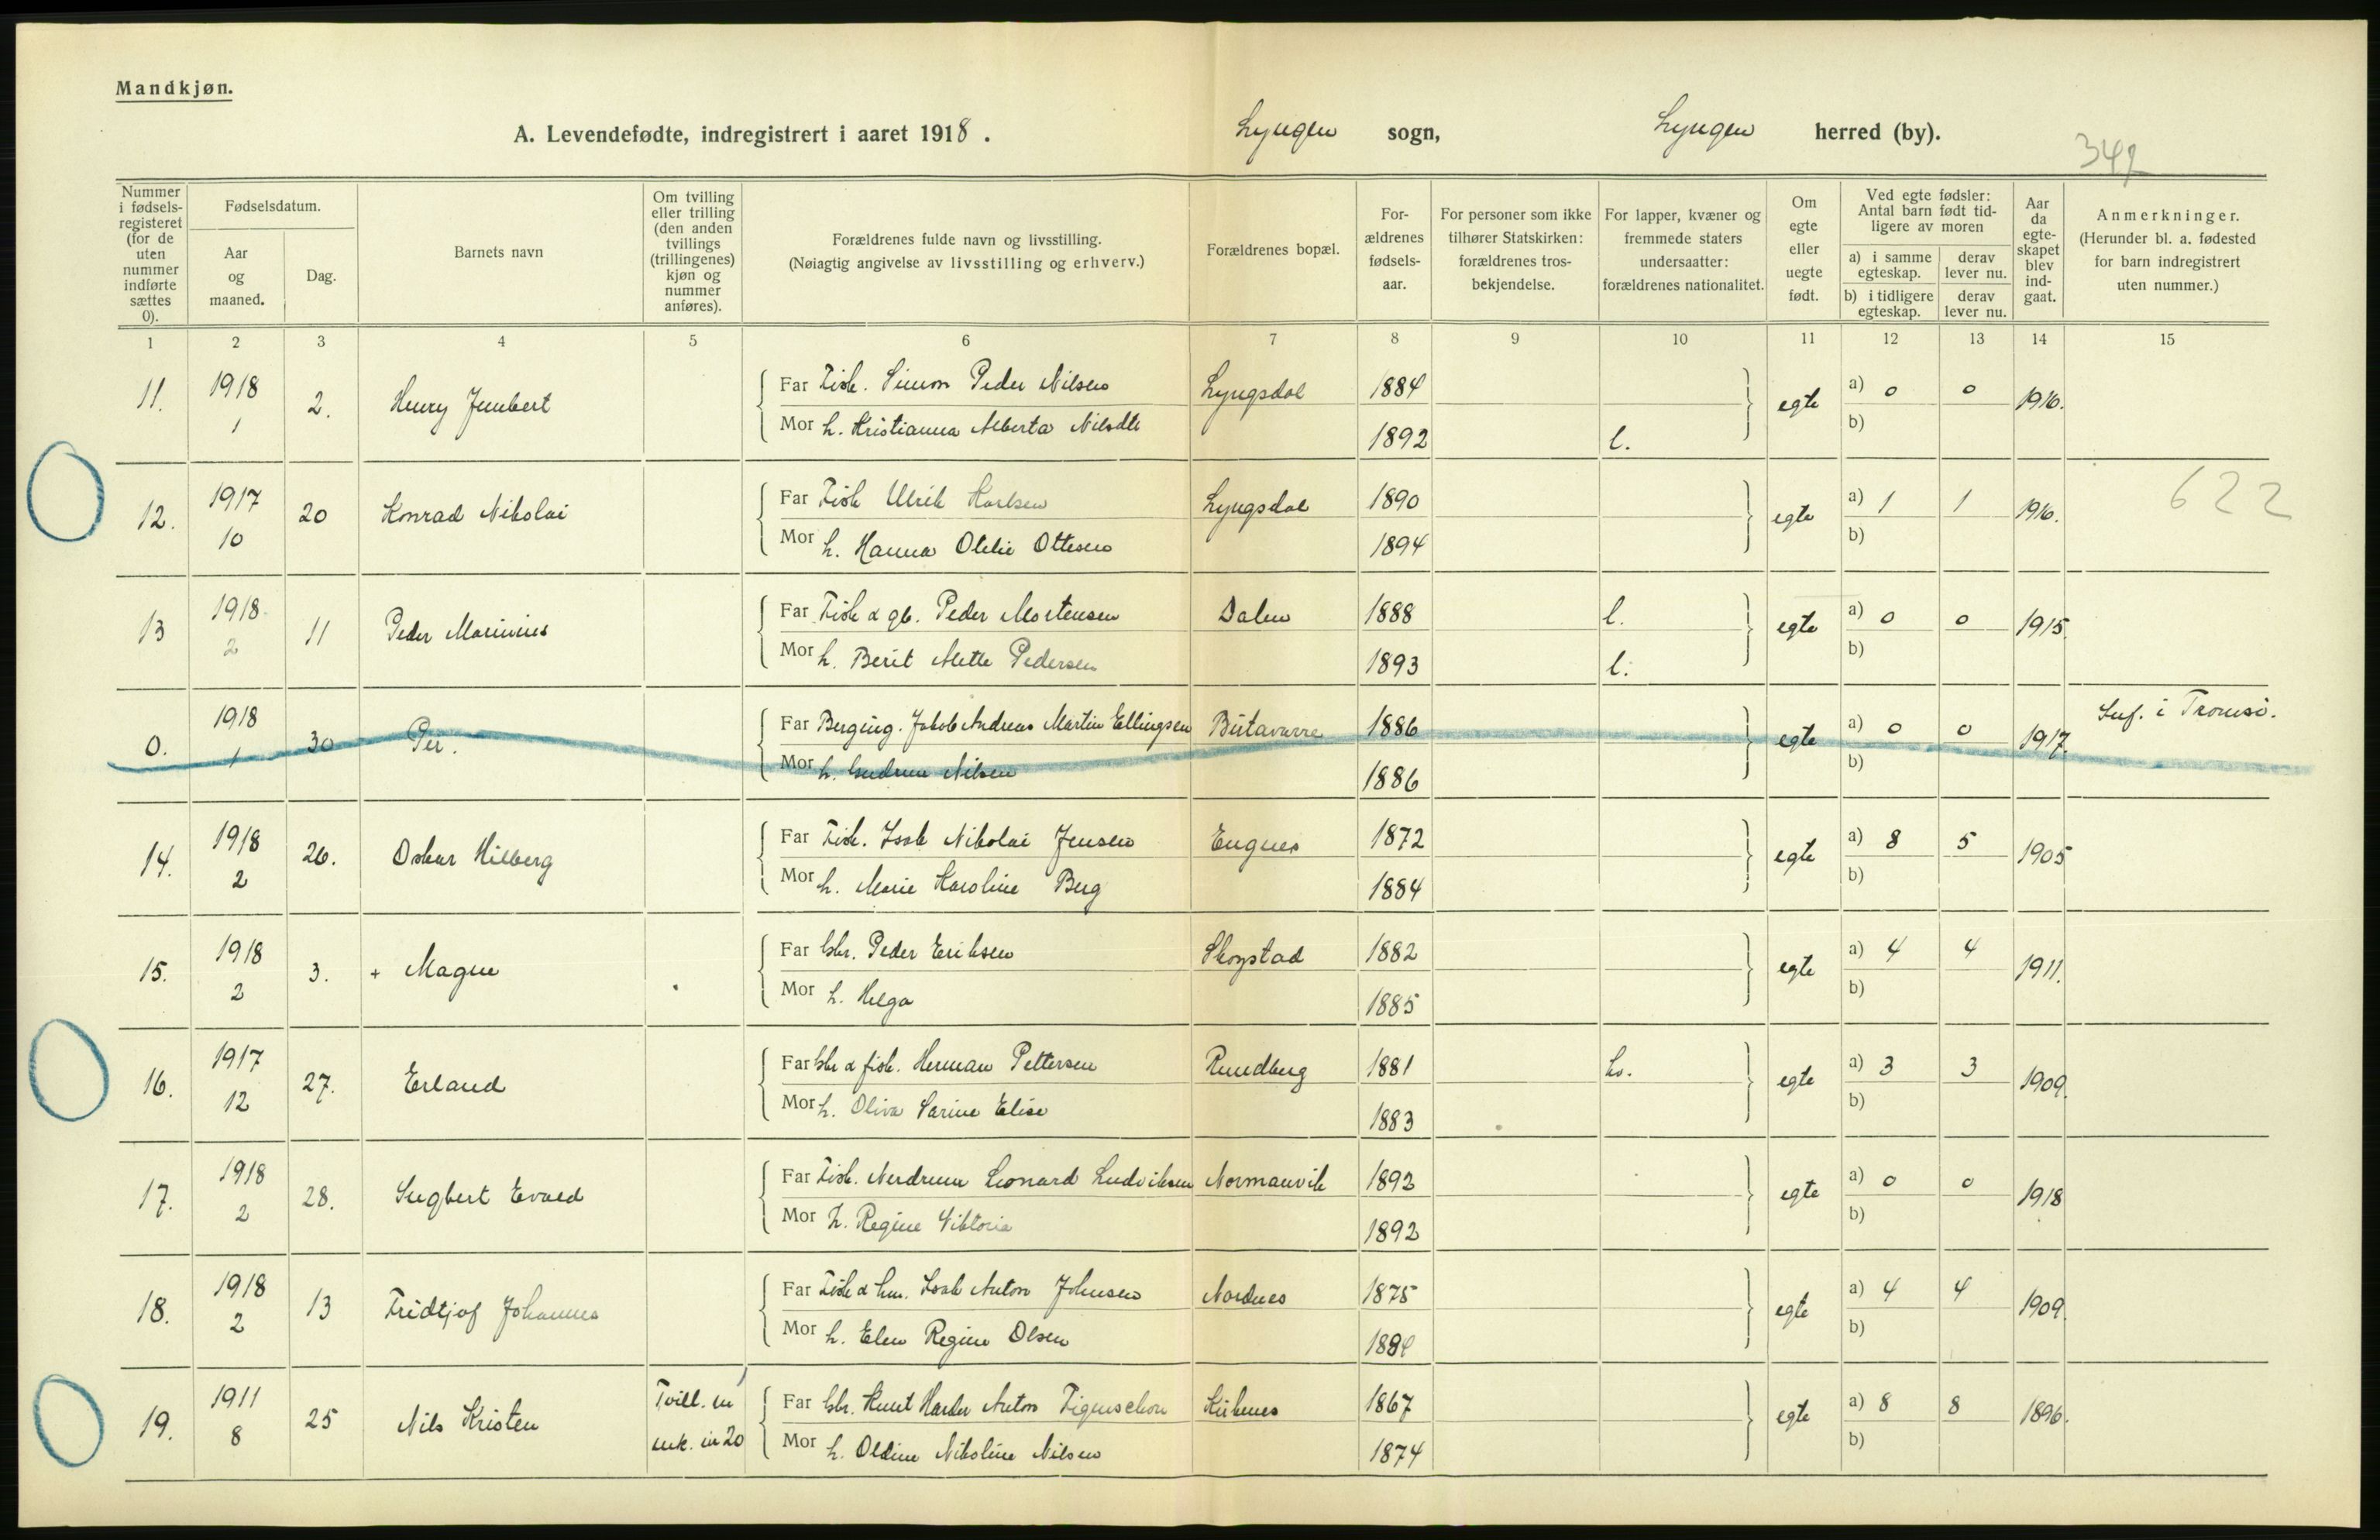 Mandkjøn.
A. Levendefødte, indregistrert i aaret 1918. Lyngen sogn, Lyngen herred (by).
342
Nummer i fødselsregisteret (for de uten nummer indførte sættes 0).
Fødselsdatum.
Aar og maaned.
Dag.
Barnets navn
Om tvilling eller trilling (den anden tvillings (trillingenes) kjøn og nummer anføres).
Forældrenes fulde navn og livsstilling.
(Nøiagtig angivelse av livsstilling og erhverv.)
Forældrenes bopæl.
For-ældrenes fødsels-aar.
For personer som ikke tilhører Statskirken: forældrenes tros-bekjendelse.
For lapper, kvæner og fremmede staters undersaatter: forældrenes nationalitet.
Om egte eller uegte født.
Ved egte fødsler: Antal barn født tid-ligere av moren
a) i samme egteskap. derav lever nu.
b) i tidligere egteskap. derav lever nu.
Aar da egte-skapet blev ind-gaat.
Anmerkninger.
(Herunder bl. a. fødested for barn indregistrert uten nummer.)
1 2 3 4 5 6 7 8 9 10 11 12 13 14 15
11. 1918 1 2. Henry Far Fisk. Simon Peder Nilsen Lyngsdal 1884 egte a) 0 0 1916.
Mor h. Kristianna Alberta Nilsdtr 1892 l. b)
12. 1917 10 20 Konrad Nikolai Far Fisk Ulrik Karlsen Lyngsdal 1890 egte a) 1 1 1916. 622
Mor h. Hanna Otelie Ottesen 1894 b)
13 1918 2 11 Peder Marinius Far Fisk & gb. Peder Mortensen Dalen 1888 l. egte a) 0 0 1915.
Mor h. Berit Mette Pedersen 1893 l. b)
0. 1918 1 30 Per. Far Berging. Jakob Andreas Martin Ellingsen Birtavarre 1886 egte a) 0 0 1917. i Tromsö.
Mor h. Gudrun Nilsen 1886 b)
14. 1918 2 26. Oskar Hilberg Far Fisk. Isak Nikolai Jensen Engnes 1872 egte a) 8 5 1905
Mor h. Marie Karoline Berg 1884 b)
15. 1918 2 3. + Magne Far Gbr. Peder Eriksen Skogstad 1882 egte a) 4 4 1911.
Mor h. Helga 1885 b)
16. 1917 12 27. Erland Far Gbr & fisk. Herman Pettersen Rundberg 1881 egte a) 3 3 1909.
Mor h. Oliva Sarine Elise 1883 b)
17. 1918 2 28. Evald Far Fisk. Nerdrum Leonard Ludviksen Normanvik 1892 egte a) 0 0 1918
Mor h. Regine Viktoria 1892 b)
18. 1918 2 13 Fridtjof Johannes Far Fisk & Isak Anton Johnsen Nordnes 1875 egte a) 4 4 1909.
Mor h. Elen Regine Olsen b)
19. 1911 8 25 Nils Kristen Tvill. m 20 Far Gbr. Knut Anton Figenschou Kirkenes 1867 egte a) 8 8 1896.
Mor h. Oldine Nikoline Nilsen 1874 b)